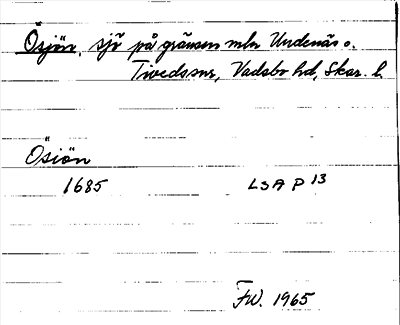 Ösjön, sjö på gränsen mln Undenäs o.
Tivedssnr, Vadsbo hd, Skar. l.
Ösiön
1685 LSA P 13
FW. 1965